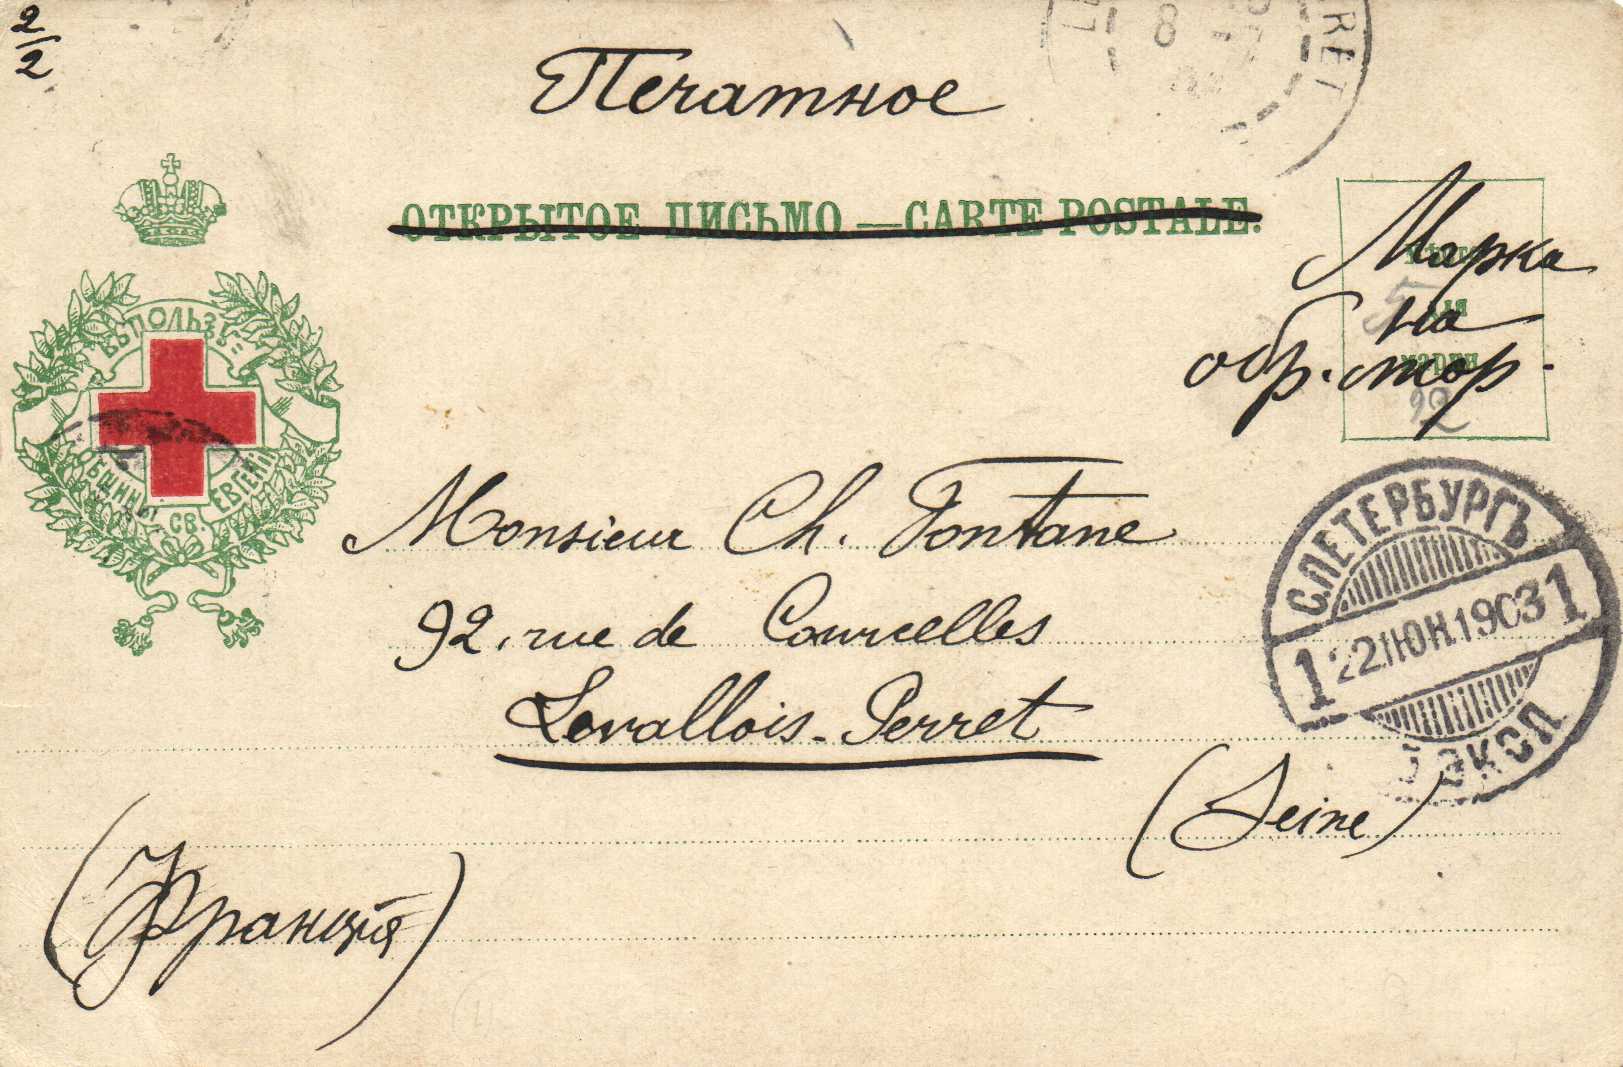 2/2
Печатное
ОТКРЫТОЕ ПИСЬМО — CARTE POSTALE.
Марка
на
обр. стор.
ВЪ ПОЛЬЗУ
ОБЩИНЫ СВ. ЕВГЕНІИ
Monsieur Ch. Fontane
92, rue de Courcelles
Levallois-Perret
(Seine)
(Франція)
С.ПЕТЕРБУРГЪ
1 22 ІЮН 1903 1
ЭКСП
RET
8
5
92